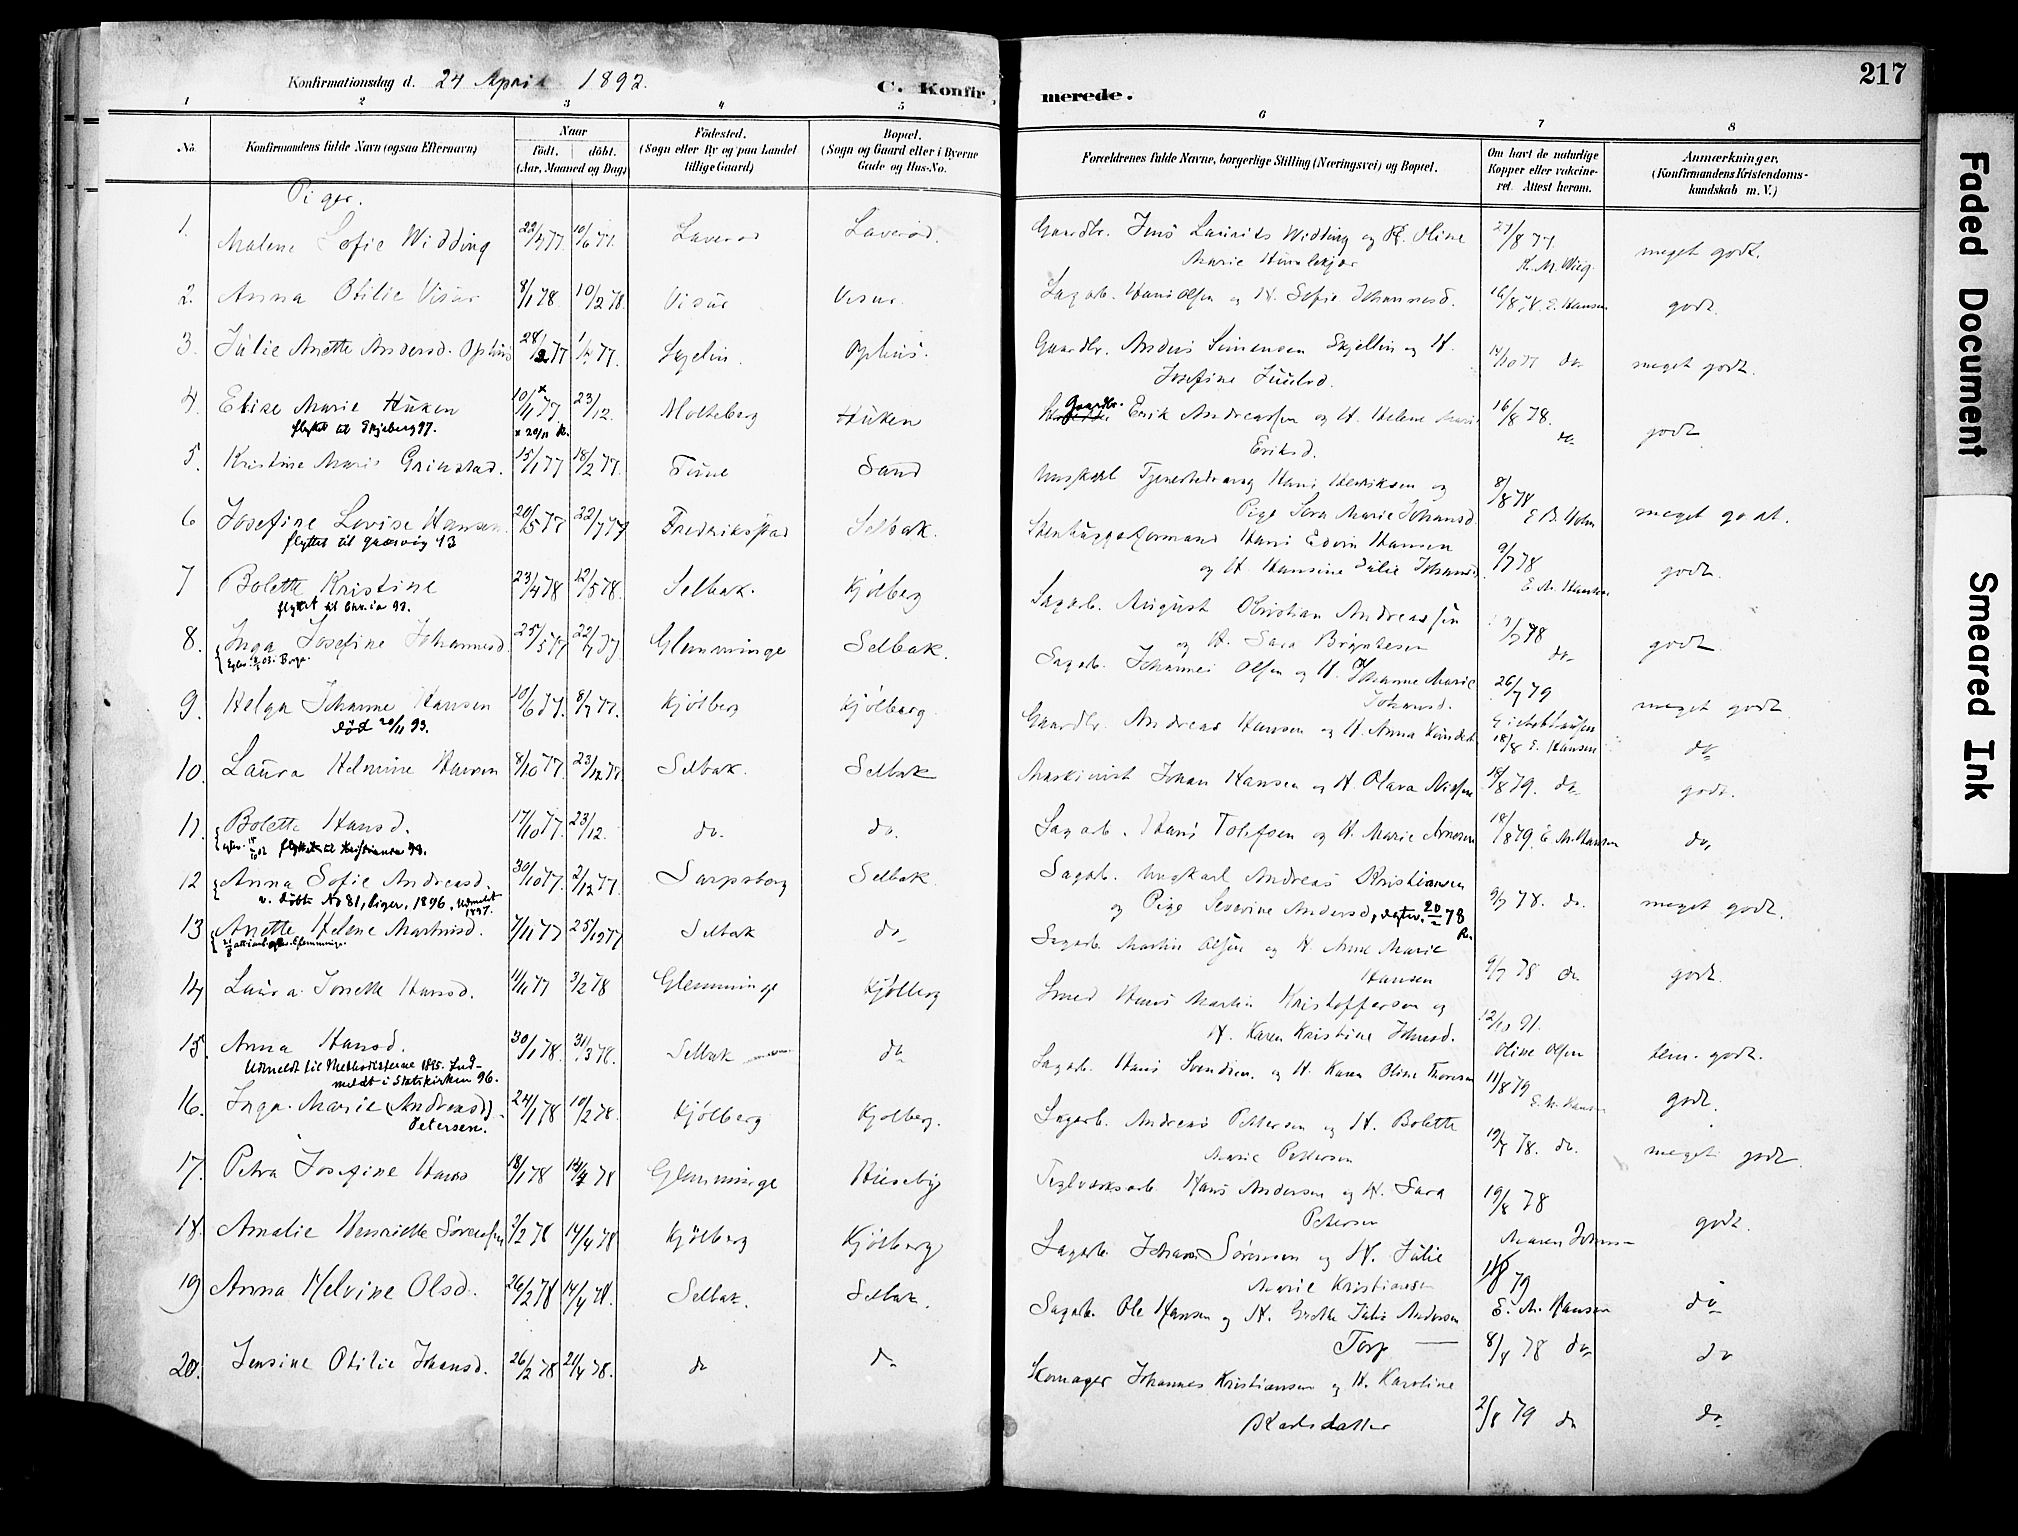 Konfirmationsdag d. 24 April 1892.
C. Konfirmerede.
217
1 2 3 4 5 6 7 8
No. Konfirmandens fulde Navn (ogsaa Efternavn) Naar Födt. döbt. (Aar, Maaned og Dag) Födested. (Sogn eller By og paa Landet tillige Gaard) Bopæl. (Sogn og Gaard eller i Byerne Gade og Hus-No.
Forældrenes fulde Navne, borgerlige Stilling (Næringsvei) og Bopæl. Om havt de naturlige Kopper eller vakcineret. Attest herom. Anmærkninger, (Konfirmandens Kristendomskundskab m. V.)
Piger.
1. Malene Sofie Widding 22/4 77. 10/6 77. Laverød Laverød. Gaardbr. Jens Laurits Widding og H. Oline Marie 27/8 77. meget godt.
2. Anna Otilie Visur 8/1 78. 10/2 78. Visur Visur. Sagarb. Hans Olsen og H. Sofie Johannesd. 16/8 78. E. Hansen godt.
3. Julie Anette Andersd. Ophus 28/2 77 Ophus. Gaardbr. Anders Simensen Skjellin og H. Josefine 14/10 77 do meget godt.
4. Elise Marie Huken 10/11 77. 23/12. Molteberg Huken Gaardbr. Erik Andreassen og H. Helene Eriksd. 16/8 78. do godt
flyttet til Skjeberg 97.
5. Kristine Marie Grimstad. 15/1 77 18/2 77. Tune Sand Ungkarl Tjenestedreng Hans Henriksen og Pige Sara Marie Johansd. 8/8 78 E. B. Holm meget godt.
6 Josefine Lovise Hansen 20/5 77 22/7 77 Fredriksstad Selbak. Hans Edvin Hansen og H. Hansine Julie 9/7 78 E. M. Hansen godt.
flyttet til 93
7 Bolette Kristine 23/4 78 12/5 78. Selbak. Kjölberg Sagarb. August Kristian Andreassen og H. Sara 78 do godt
flyttet til 93.
8. Inga Josefine Johannesd. 25/5 77 22/7 77 Glemminge Selbak. Sagarb. Johannes Olsen og H. Johanne Marie Johansd. 26/7 79 meget godt
9. Helga Johanne Hansen 10/6 77. 8/7 77. Kjölberg Kjölberg Gaardbr. Andreas Hansen og H. Anna 18/8 E. Hansen do
död 20/11 93.
10. Laura Helmine Hansen 8/10 77. 23/12 77 Selbak. Selbak Maskinist Johan Hansen og H. Olava Nilsen 18/8 79. do godt.
11. Bolette Hansd. 17/10 77. 23/12. do. do. Sagarb. Hans Tolefsen og H. Marie 18/8 79. E. M. Hansen do,
flyttet til Kristiania 93.
12 Anna Sofie Andreasd. 30/10 77. 2/12 77. Sarpsborg Selbak. Sagarb. Ungkarl Andreas Kristiansen og Pige Severine Andersd. 9/7 78. do. meget godt.
v. döbte No 81, Piger, 1896, Udmeldt 1897.
13 Anette Helene Martinsd. 7/11 77 25/12 77 Selbak do Sagarb. Martin Olsen og H. Anne Marie Hansen 9/7 78 do godt.
14 Laura Josette Hansd. 11/11 77 3/2 78 Glemminge Kjölberg Smed Hans Martin Kristoffersen og H. Karen Kristine 12/10 91. Oline Olsen tem. godt.
15. Anna Hansd. 30/1 78. 31/3 78. Selbak do Sagarb. Hans Svendsen og H. Karen Oline Thoresen 11/8 79 E. M. Hansen godt.
Udmeldt til Methodisterne 1895. Indmeldt i Statskirken 96.
16. Inga Marie (Andreasd) Petersen. 24/1 78 10/2 78. Kjölberg Kjölberg. Sagarb. Andreas Pettersen og H. Bolette Marie Pettersen 78. do. meget godt.
17. Petra Josefine Hans 18/1 78 14/4 78 Glemminge Huseby Teglværksarb. Hans Andersen og H. Sara Petersen 19/8 78 Maren godt.
18. Amalie Henriette Sörensen 3/2 78 14/4 78 Kjölberg Kjölberg Sagarb. Johan Sørensen og H. Julie Marie Kristiansen 11/8 79 E. M. Hansen do
19 Anna Helvine Olsd. 26/2 78 14/4 78. Selbak. Selbak. Sagarb. Ole Hansen og H. Grethe Julie Andersen Torp 8/8 78 do do
20. Jensine Otilie Johansd. 26/2 78 21/4 78. do do Skomager Johannes Kristiansen og H. Karoline Karlsdatter 2/8 79 do do
Faded Document
Smeared Ink